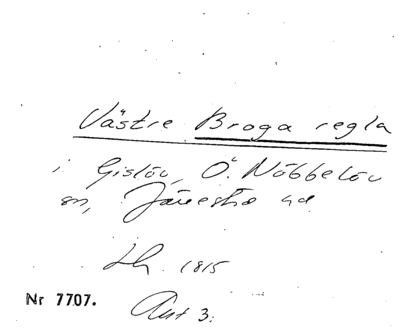 Västre Broga regla
i Gislöv, Ö. Nöbbelöv
sn, Järrestad hd
Lh. 1815
Nr 7707.
Ant 3.